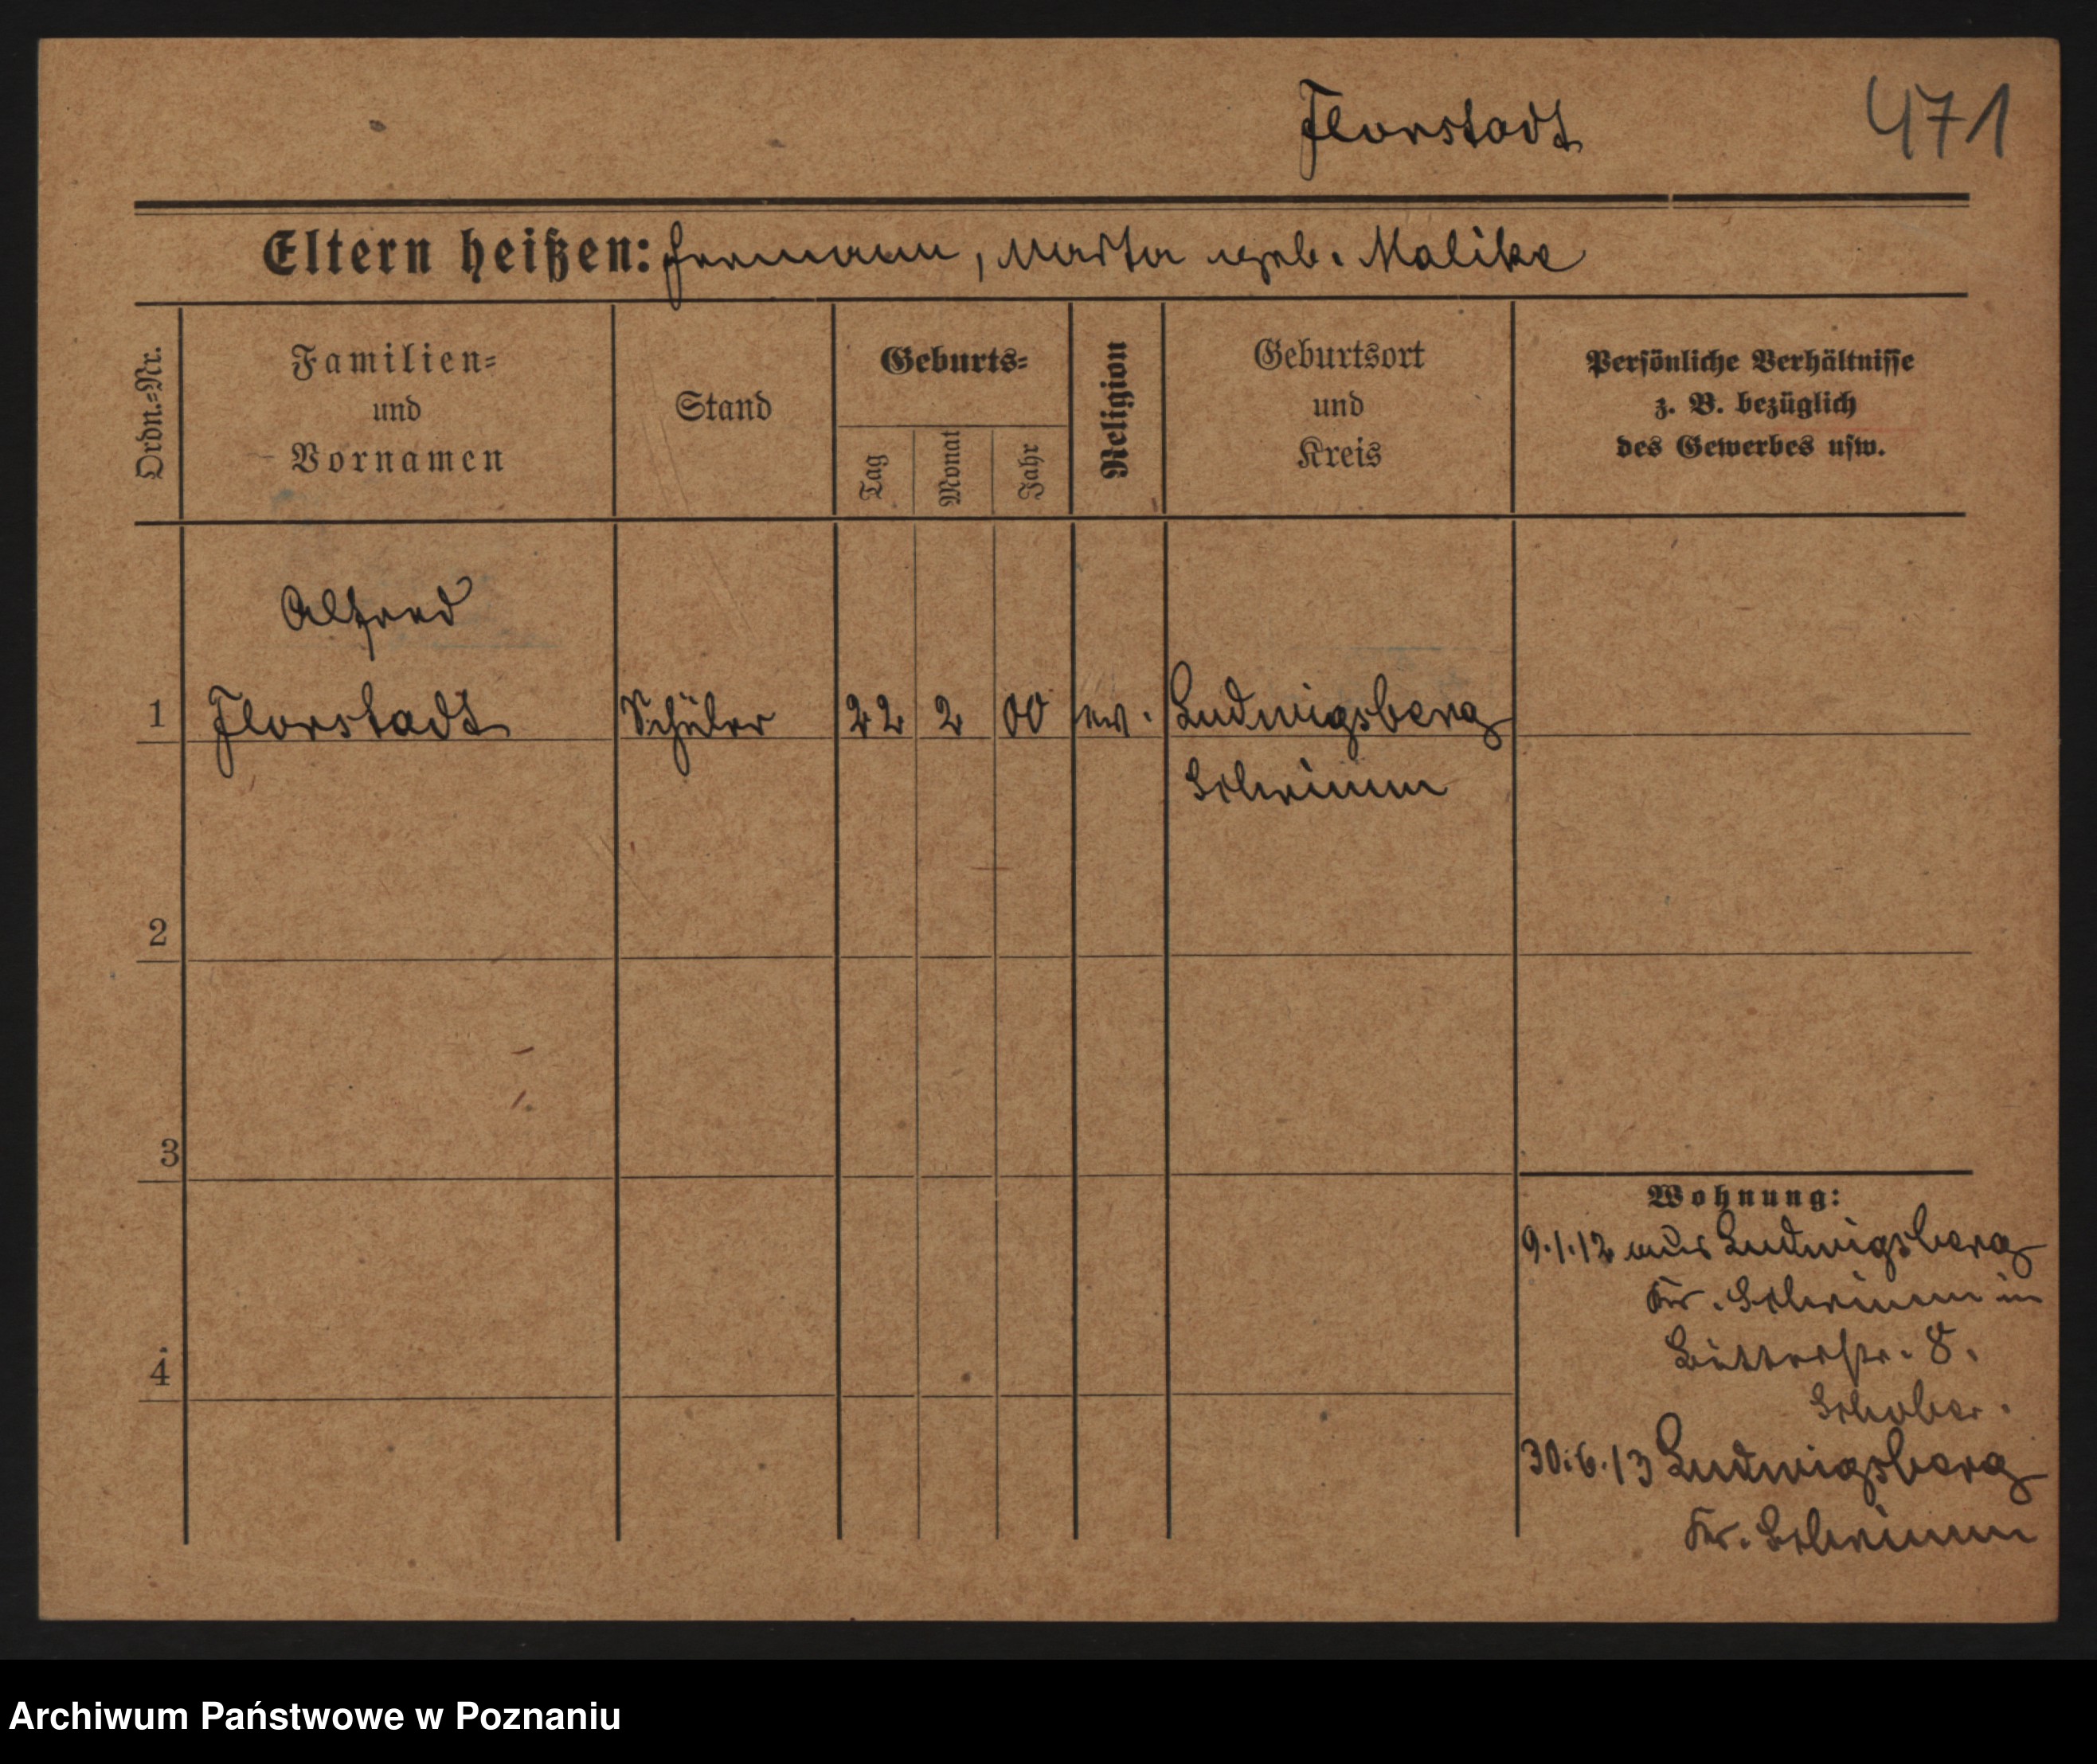 Florstadt 471
Eltern heißen: Hermann, Marta geb. Malike
Ordn.=Nr.
Familien=
und
Vornamen
Stand
Geburts=
Tag
Monat
Jahr
Religion
Geburtsort
und
Kreis
Persönliche Verhältnisse
z. B. bezüglich
des Gewerbes usw.
Alfred
1 Florstadt Schüler 22 2 00 ev. Ludwigsberg
Schrimm
2
3
4
Wohnung:
9.1.12 aus Ludwigsberg
Kr. Schrimm in
8.
Schober.
30.6.13 Ludwigsberg
Kr. Schrimm
Archiwum Państwowe w Poznaniu